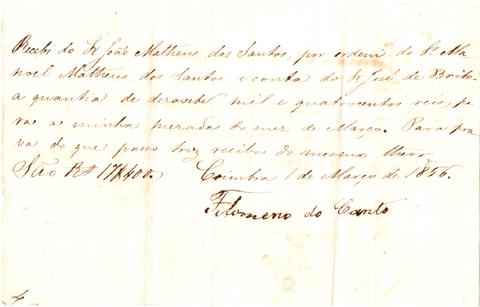 Recebi do Sr João Matheus dos Santos, por ordem do Sr Ma
noel Matheus dos Santos e conta do Sr José de Brito
a quantia de desasete mil e quatrocentos reis, pa
ra a minha mezada do mez de Março. Para pro
va do que passo trez recibos do mesmo theor.
São Rs 17$400. Coimbra 1 de Março de 1856.
Filomeno do Canto